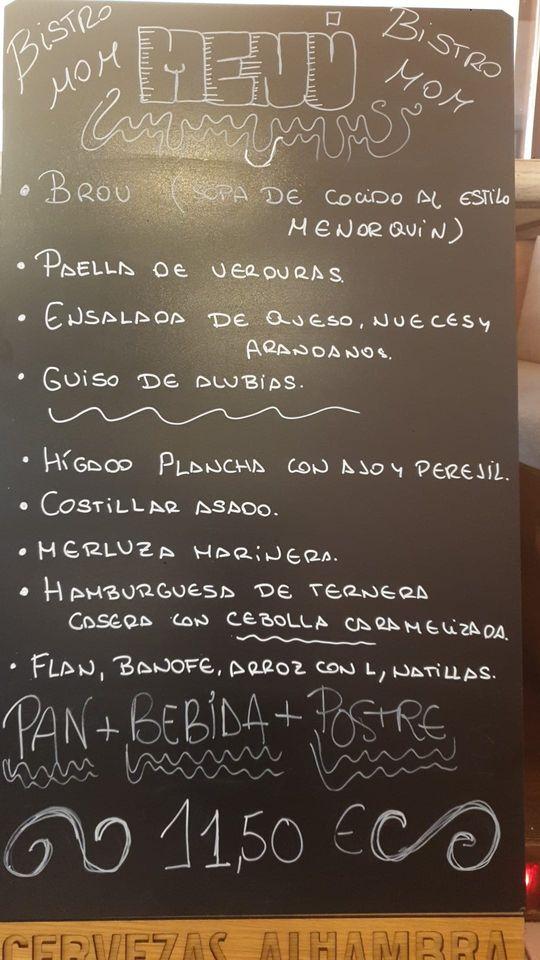 BISTRO MOM
MENÚ
BISTRO MOM
• BROU (SOPA DE COCIDO AL ESTILO
MENORQUIN)
• PAELLA DE VERDURAS.
• ENSALADA DE QUESO, NUECES Y
ARANDANOS.
• GUISO DE ALUBIAS.
• HÍGADO PLANCHA CON AJO Y PEREJIL.
• COSTILLAR ASADO.
• MERLUZA MARINERA.
• HAMBURGUESA DE TERNERA
CASERA CON CEBOLLA CARAMELIZADA.
• FLAN, BANOFE, ARROZ CON L, NATILLAS.
PAN + BEBÍDA + POSTRE
11,50 €
CERVEZAS ALHAMBRA